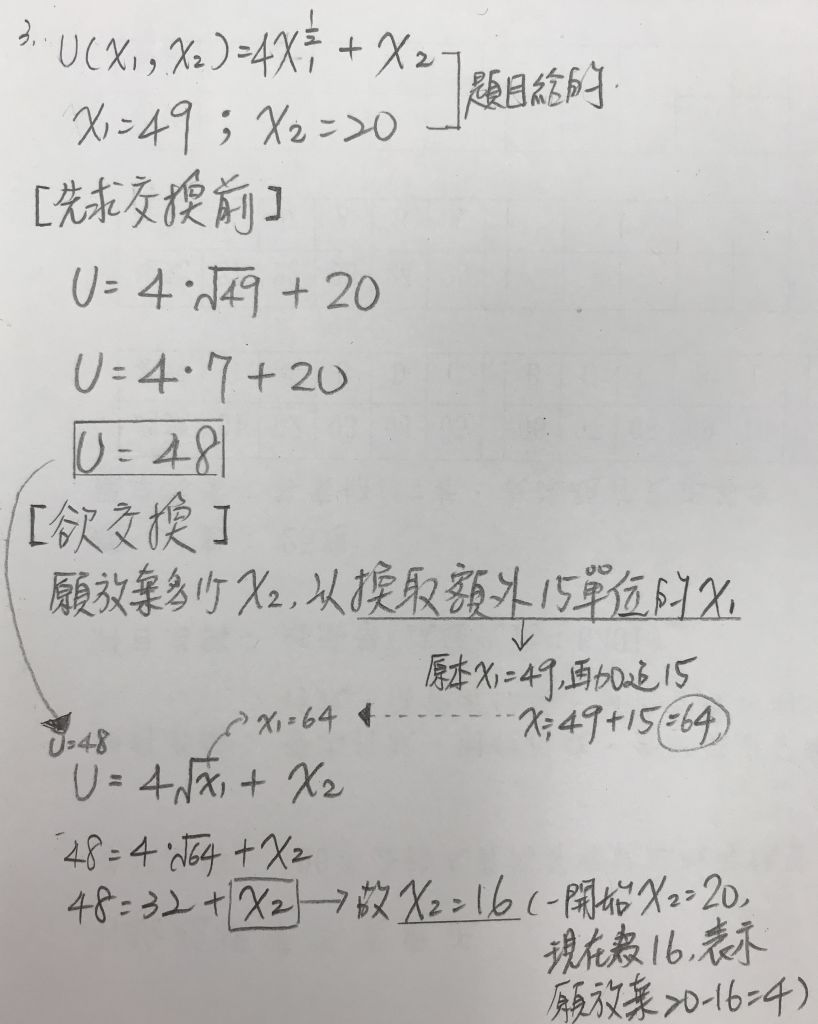 3. U(x₁, x₂)=4x₁^½ + x₂
x₁=49 ; x₂=20
題目給的.
[先求交換前]
U= 4·√49 + 20
U= 4·7 + 20
U= 48
[欲交換]
願放棄多少 x₂, 以換取額外15單位的 x₁
↓
原本 x₁=49, 再加這15
U=48
x₁=64 ◀------ x₁=49+15=64
U= 4√x₁ + x₂
48=4·√64 + x₂
48=32+x₂ → 故 x₂=16 (一開始 x₂=20,
現在變16, 表示
願放棄 20-16=4)